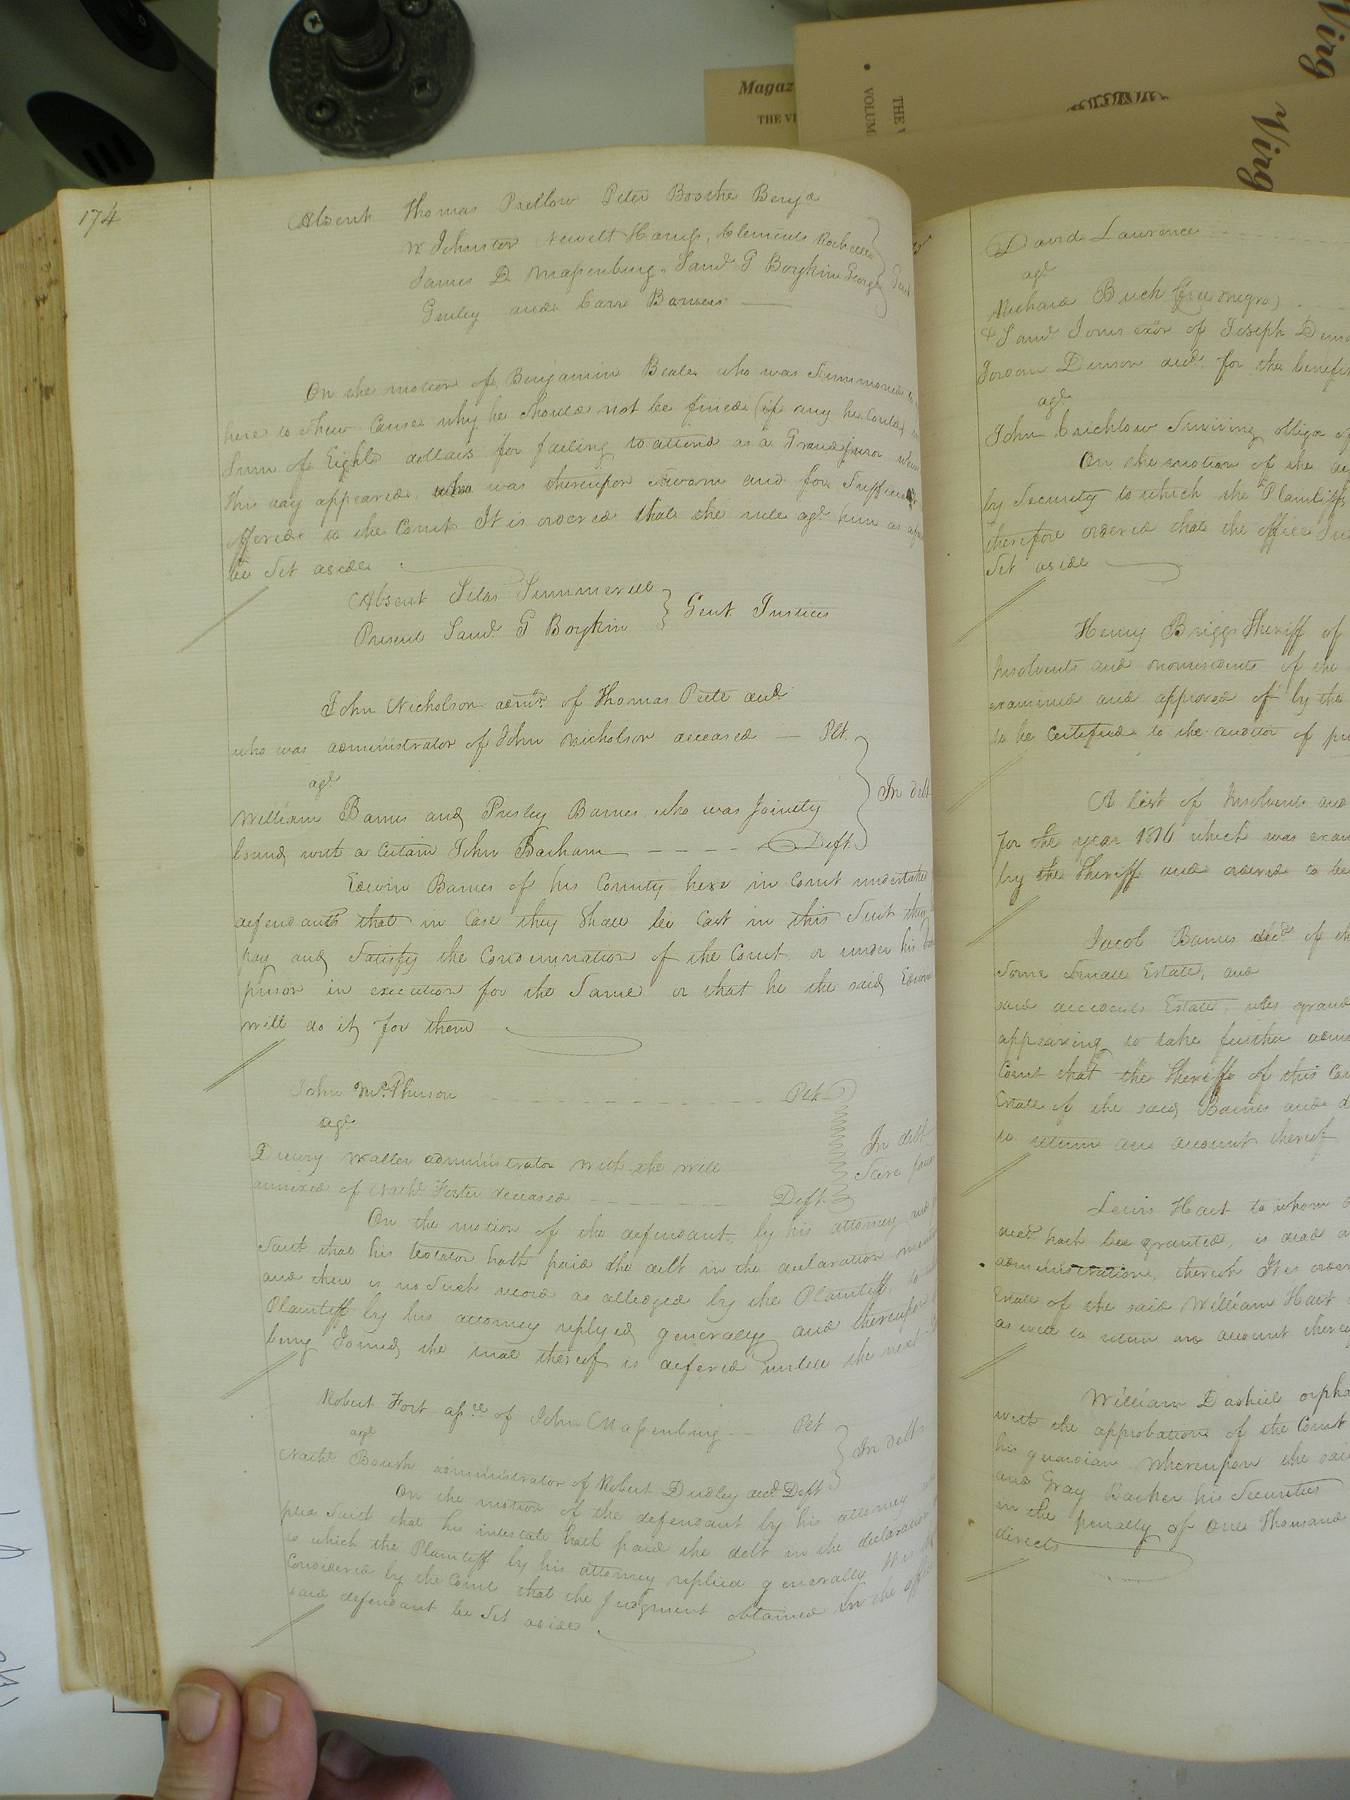 174
Absent Thomas Pretlow Peter Boothe Benja
W Johnston Newitt Harris, Clements Rochelle
James D Massenburg, Saml G Boykin George
Gurley and Carr Bowers
On the motion of Benjamin Beale who was Summoned
here to Shew Cause why he Should not be fined (if any he Could)
Sum of Eight dollars for failing to attend as a Grand juror
this day appeared, who was thereupon Sworn and for Sufficient
offered to the Court It is ordered that the rule agt him as
be Set aside
Absent Silas Summerell
Present Saml G Boykin } Gent Justices
John Nicholson admr. of Thomas Peete decd
who was administrator of John Nicholson deceased — Plt.
agt
William Barnes and Presley Barnes who was Jointly
bound with a Certain John Barham — Deft.
In debt
Edwin Barnes of his County here in Court undertakes
defendants that in Case they Shall be Cast in this Suit they
pay and Satisfy the Condemnation of the Court or under his
prison in execution for the Same or that he the said Edwin
will do it for them
John McPhierson Plt
agt
Drewry Waller administrator with the will
annexed of Nathl Foster deceased Deft.
In debt
On the motion of the defendant, by his attorney and
Saith that his testator hath paid the debt in the declaration
and there is no Such record as alledged by the Plaintiff, to
Plaintiff by his attorney replyed generally and thereupon
being Joined the trial thereof is defered untill the next
Robert Fort assee of John Massenburg Plt
agt
Nathl Boush administrator of Robert Dudley decd Deft
In debt
On the motion of the defendant by his attorney
plea Saith that his intestate hath paid the debt in the declaration
to which the Plaintiff by his attorney replied generally It is
Considered by the Court that the judgment obtained in the office
said defendant be Set aside
David Lawrence
agt
Michael Buck (free negro)
& Saml Jones exor of Joseph
Jordan Denson decd. for the benefit
agt
John Crichlow Surviving obligor of
On the motion of the
by Security to which the Plaintiff
therefore ordered that the office
Set aside
Henry Briggs Sheriff of
Insolvents and nonresidents of the
examined and approved of by the
to be Certified to the auditor of
A list of Insolvents and
for the year 1816 which was
by the Sheriff and ordered to be
Jacob Barnes decd of
Some Small Estate, and
said deceaseds Estate,
appearing to take further
Court that the Sheriff of this
Estate of the said Barnes and
to return an account thereof
Lewis Hart to whom
decd hath been granted, is dead
administration, thereof It is
Estate of the said William Hart
as well to return an account thereof
William Dashiel orphan
with the approbation of the Court
his guardian whereupon the said
and Gray Barker his Securities
in the penalty of one Thousand
directs
Magaz
THE VI
THE V
VOLUM
Virg
Virg